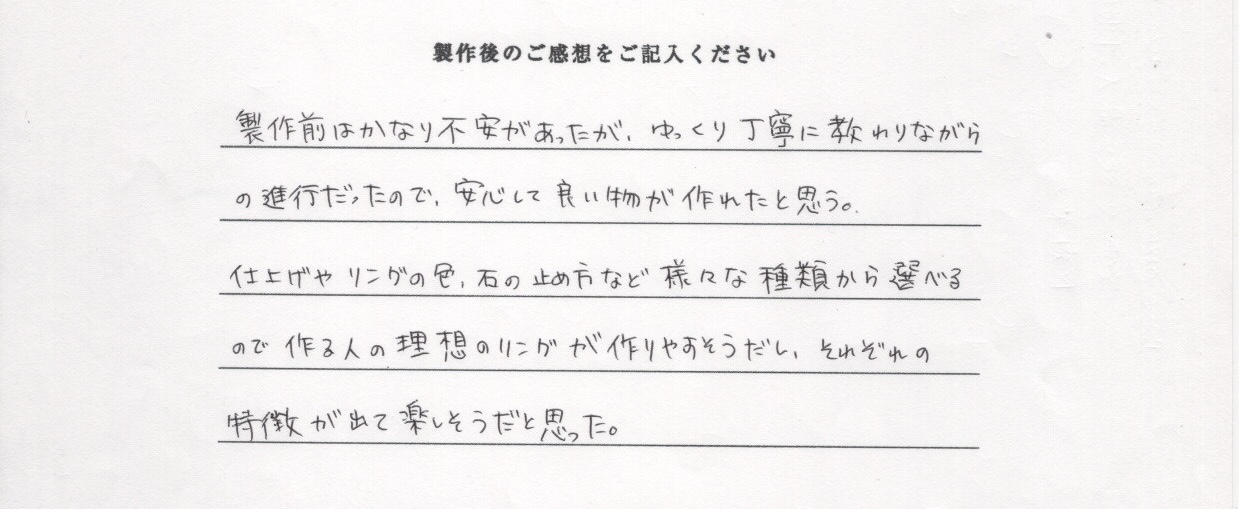 製作後のご感想をご記入ください
製作前はかなり不安があったが、ゆっくり丁寧に教わりながら
の進行だったので、安心して良い物が作れたと思う。
仕上げや リングの色、石の止め方など様々な種類から選べる
ので作る人の理想のリングが作りやすそうだし、それぞれの
特徴が出て楽しそうだと思った。